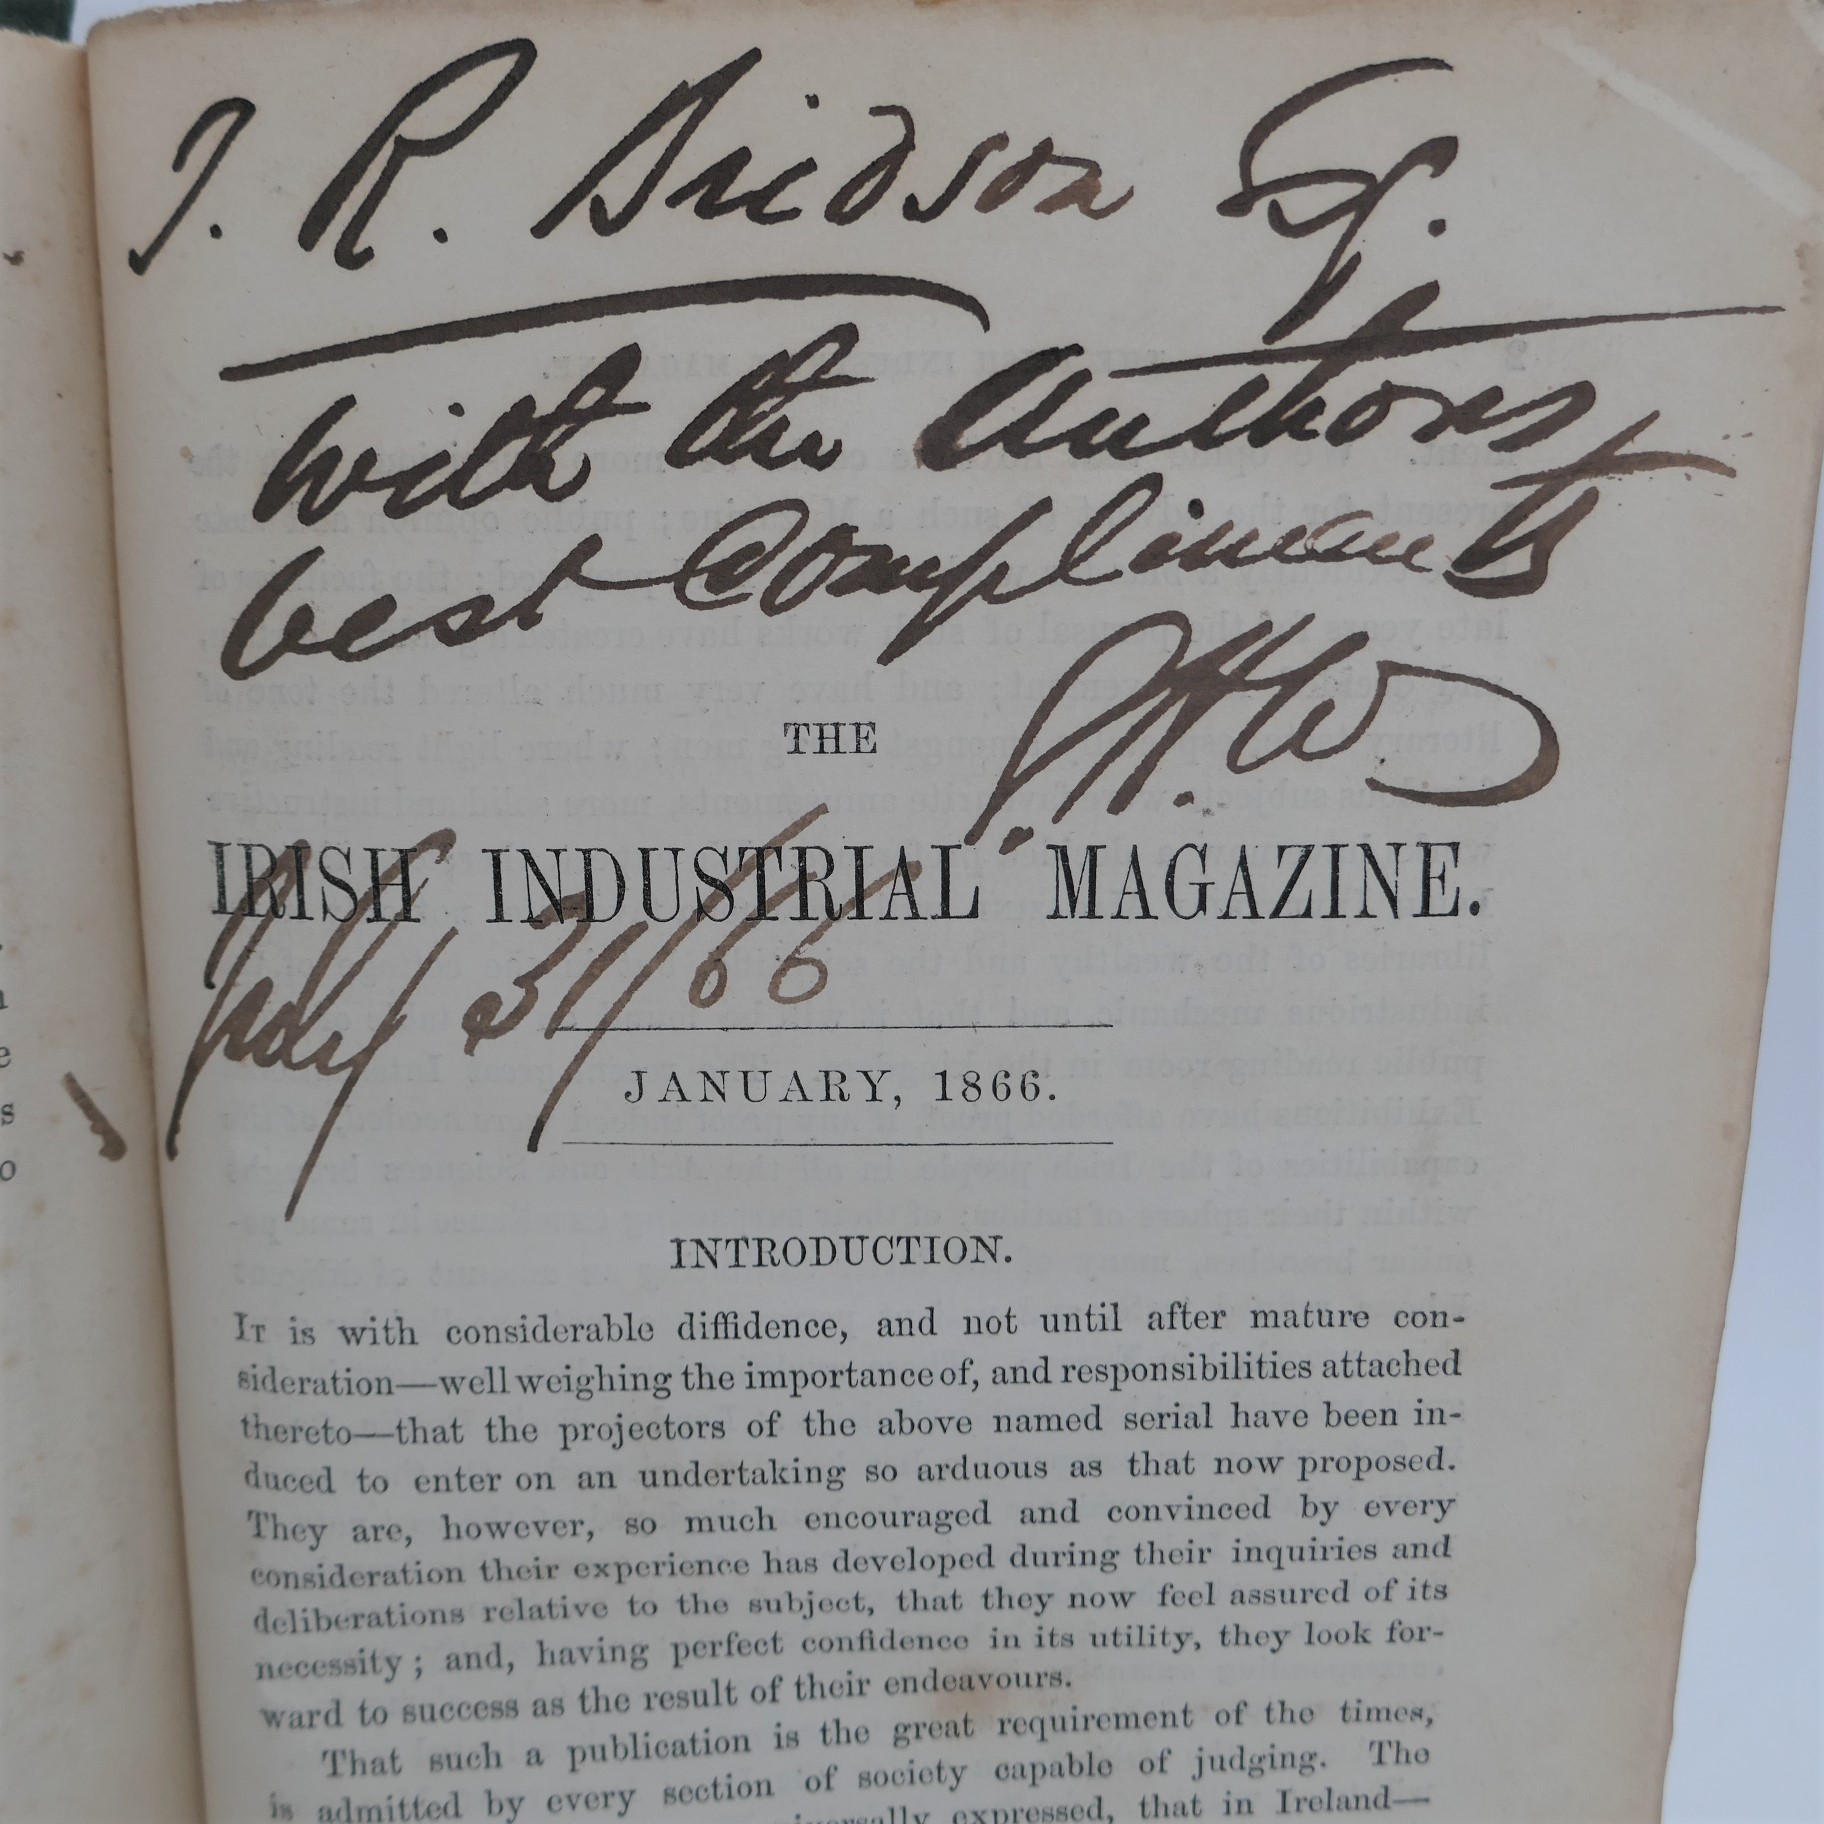 J. R. Bridson Esq.
with the Authors
best Compliments
J. H. W
THE
IRISH INDUSTRIAL MAGAZINE.
31/66
JANUARY, 1866.
INTRODUCTION.
IT is with considerable diffidence, and not until after mature con-
sideration—well weighing the importance of, and responsibilities attached
thereto—that the projectors of the above named serial have been in-
duced to enter on an undertaking so arduous as that now proposed.
They are, however, so much encouraged and convinced by every
consideration their experience has developed during their inquiries and
deliberations relative to the subject, that they now feel assured of its
necessity; and, having perfect confidence in its utility, they look for-
ward to success as the result of their endeavours.
That such a publication is the great requirement of the times,
is admitted by every section of society capable of judging. The
expressed, that in Ireland—